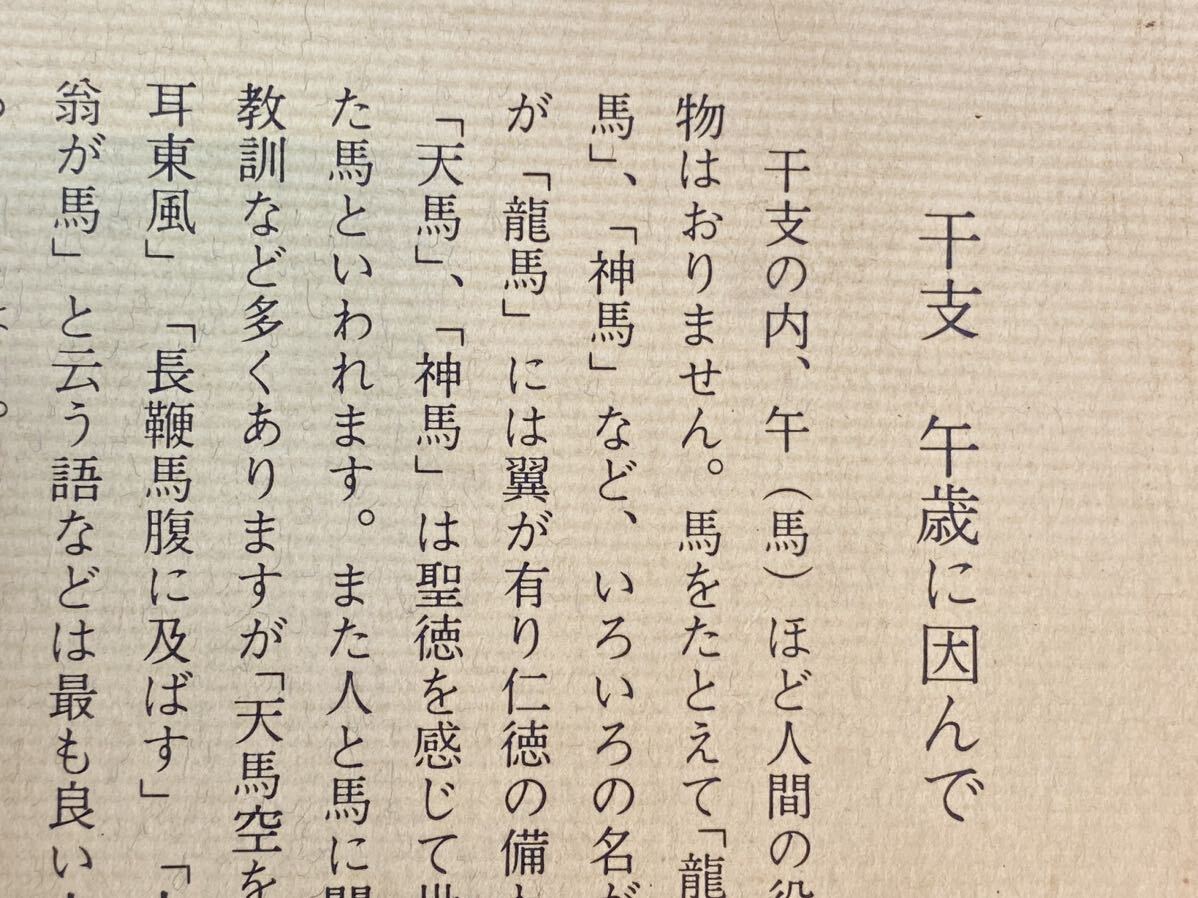 干支 午歳に因んで
干支の内、午（馬）ほど人間の役
物はおりません。馬をたとえて「龍
馬」、「神馬」など、いろいろの名が
が「龍馬」には翼が有り仁徳の備
「天馬」、「神馬」は聖徳を感じて
た馬といわれます。また人と馬に
教訓など多くありますが「天馬空を
耳東風」「長鞭馬腹に及ばす」「
翁が馬」と云う語などは最も良い